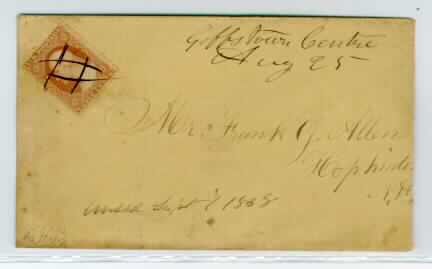 Goffstown Centre
Aug 25
Mr Frank G. Allen
Hopkin
N.H
Sept 1868